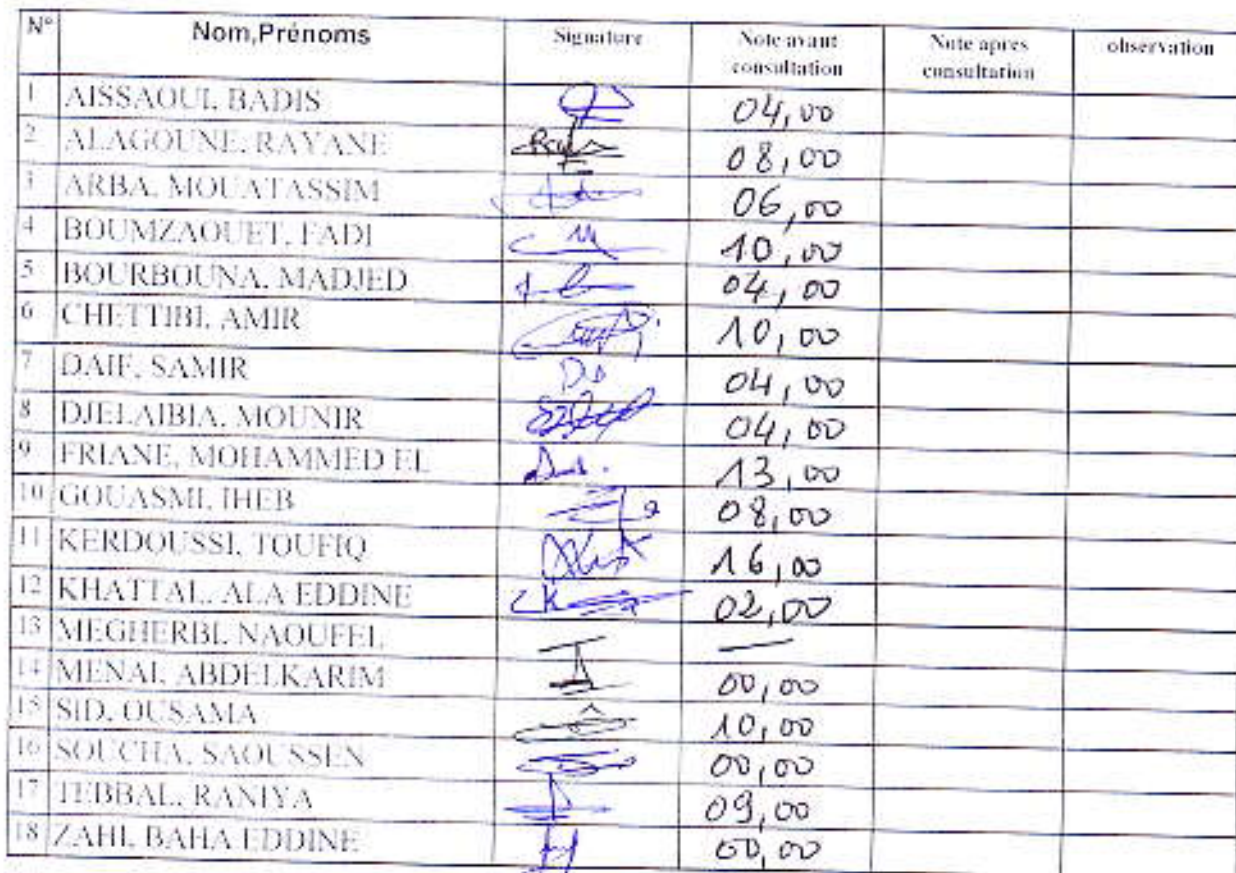 N° Nom,Prénoms Signature Note avant consultation Note apres consultation observation
1 AISSAOUI, BADIS 04,00
2 ALAGOUNE, RAYANE 08,00
3 ARBA, MOUATASSIM 06,00
4 BOUMZAOUET, FADI 10,00
5 BOURBOUNA, MADJED 04,00
6 CHETTIBI, AMIR 10,00
7 DAIF, SAMIR 04,00
8 DJELAIBIA, MOUNIR 04,00
9 FRIANE, MOHAMMED EL 13,00
10 GOUASMI, IHEB 08,00
11 KERDOUSSI, TOUFIQ 16,00
12 KHATTAL, ALA EDDINE 02,00
13 MEGHERBI, NAOUFEL —
14 MENAI, ABDELKARIM 00,00
15 SID, OUSAMA 10,00
16 SOUCHA, SAOUSSEN 00,00
17 TEBBAL, RANIYA 09,00
18 ZAHI, BAHA EDDINE 00,00